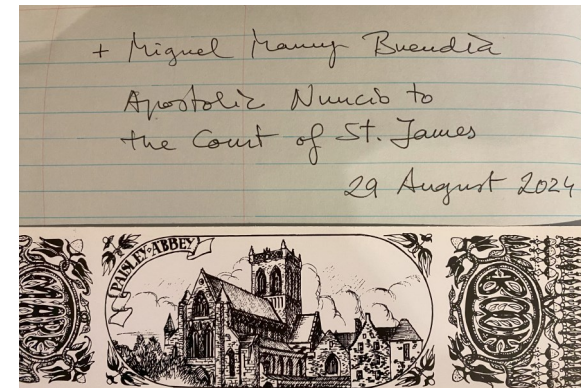 + Miguel Maury Buendía
Apostolic Nuncio to
the Court of St. James
29 August 2024
PAISLEY·ABBEY
MARK
BOOK